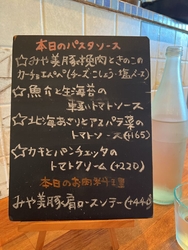 本日のパスタソース
☆みや美豚ほほ肉ときのこ
カーチョエペペ(チーズ・こしょう・塩ベース)
☆魚介と生海苔の
トマトソース
☆北海あさりとアスパラ菜の
トマトソース(+165)
☆カキとパンチェッタの
トマトクリーム(+220)
本日のお肉料理
みや美豚肩ロースソテー(+440)